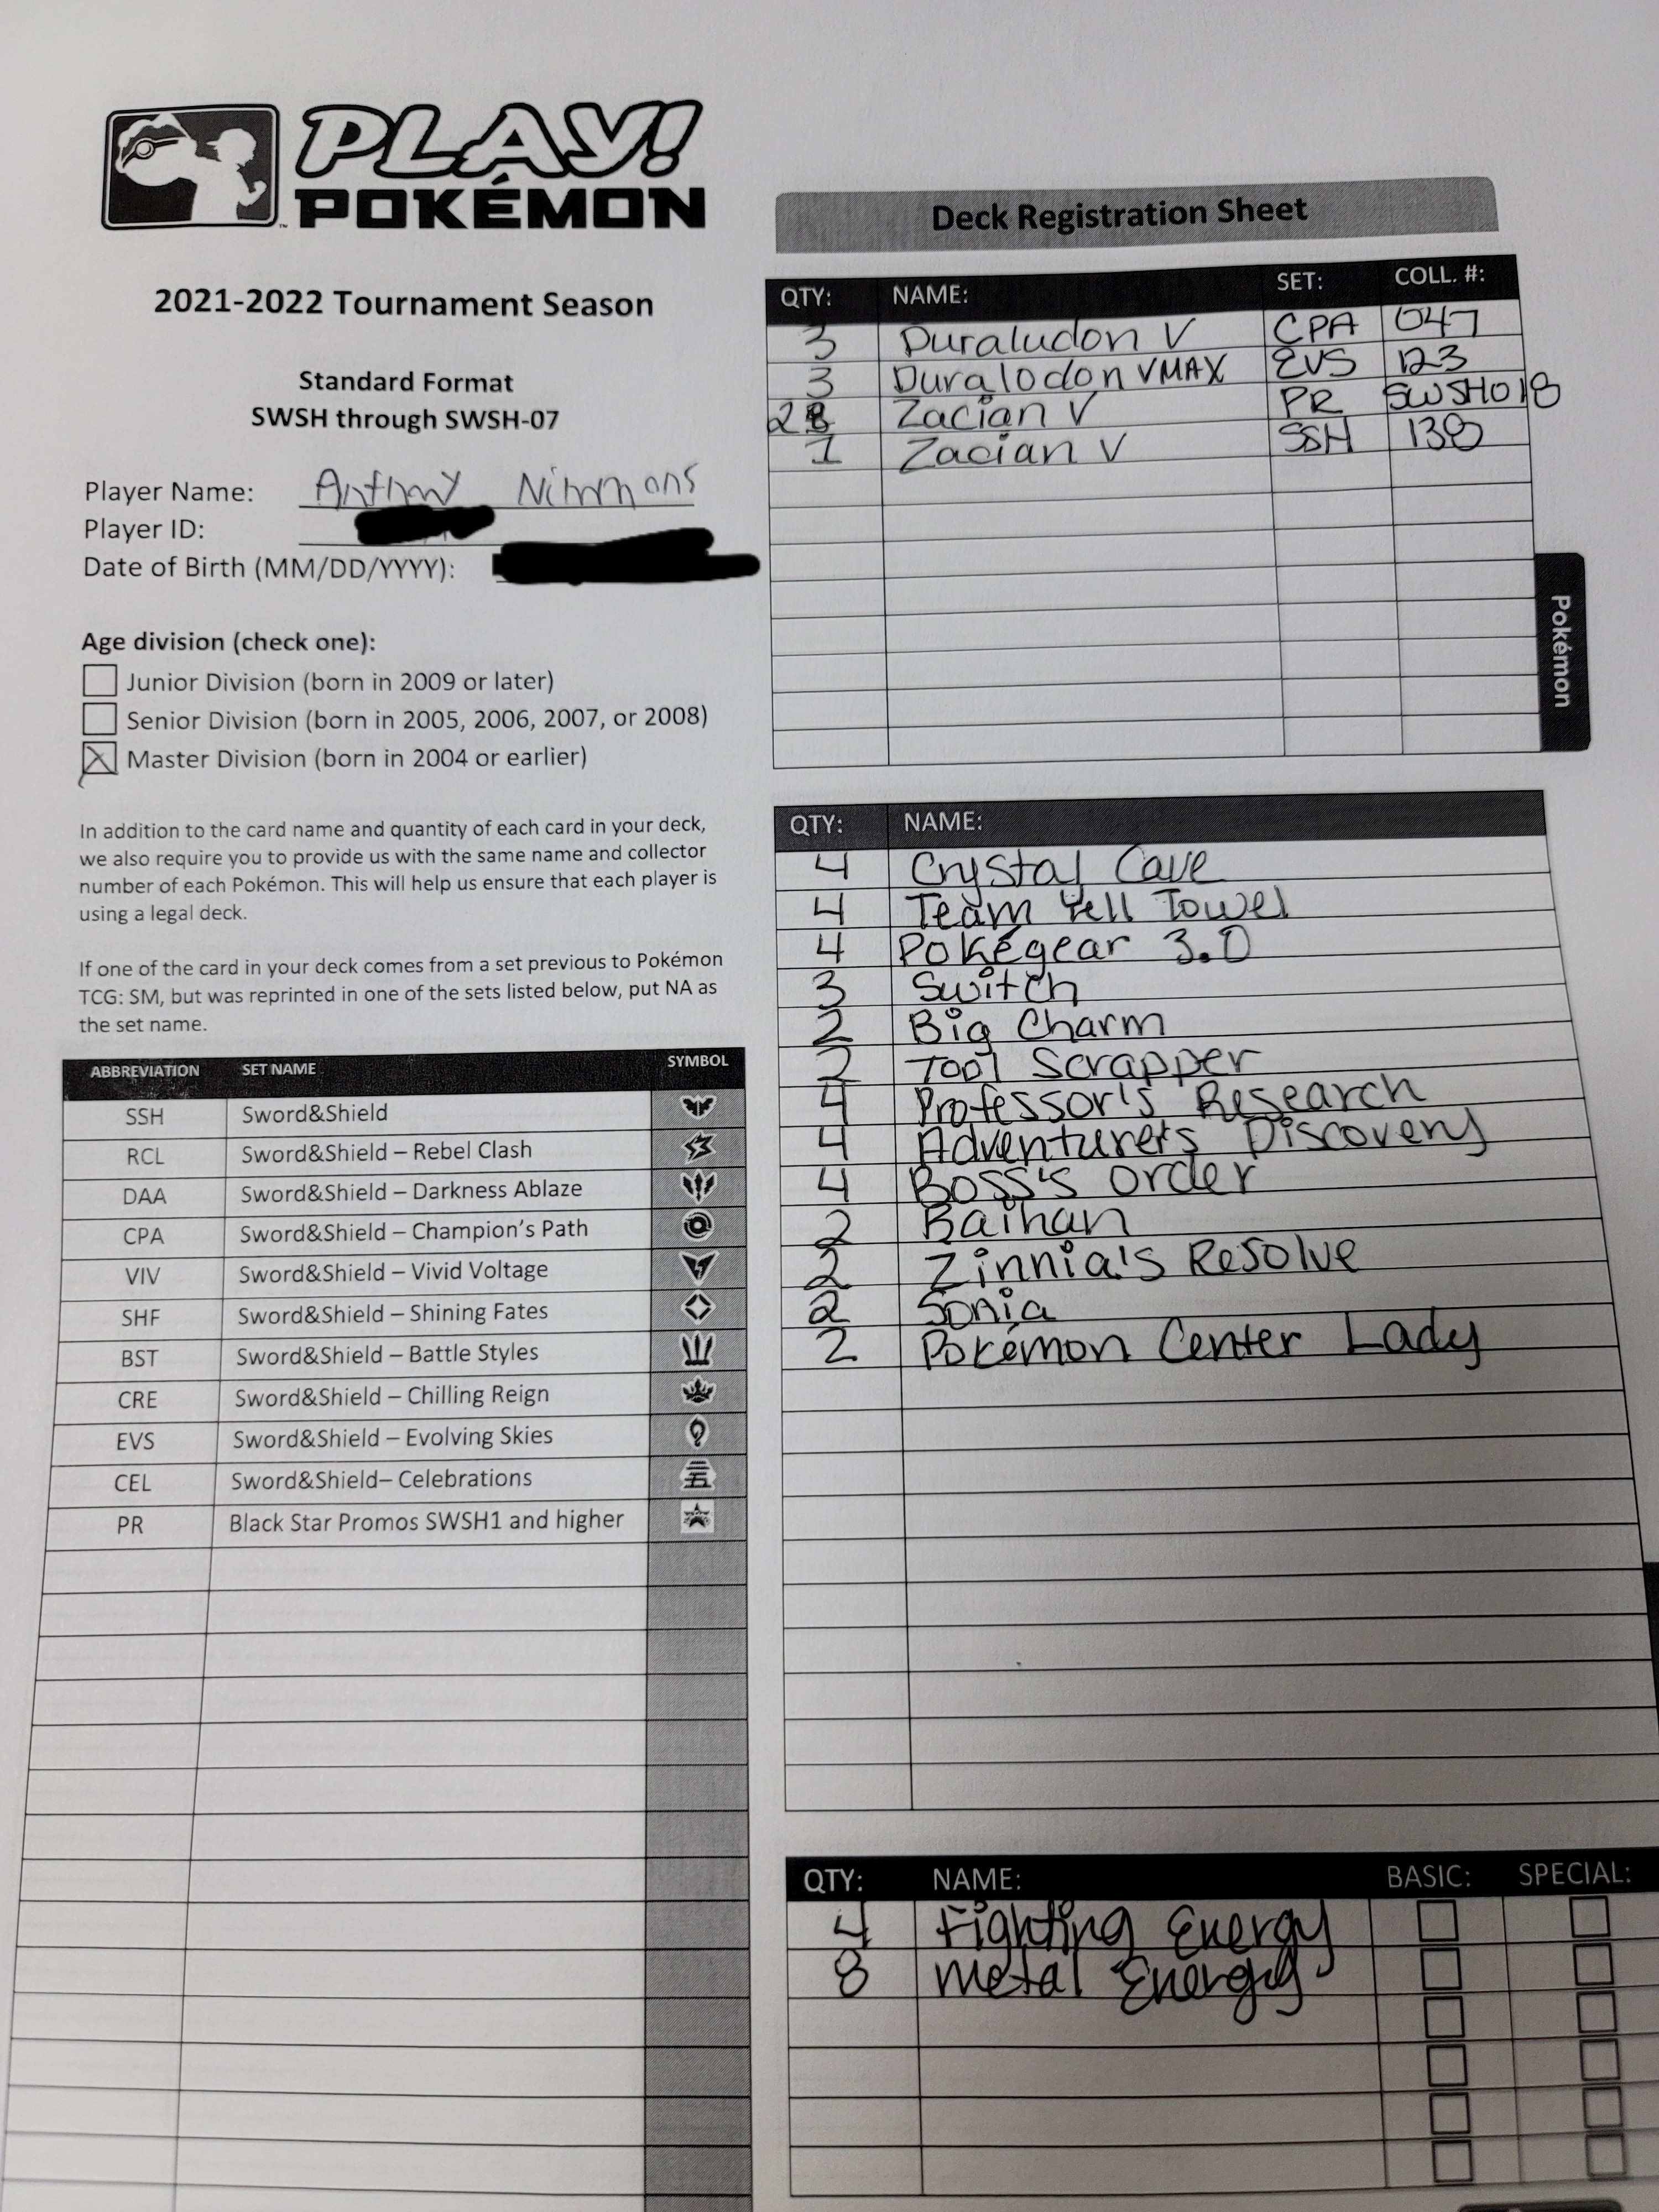 PLAY!
POKÉMON
™
2021-2022 Tournament Season
Standard Format
SWSH through SWSH-07
Player Name: Anthony Nimmons
Player ID:
Date of Birth (MM/DD/YYYY):
Age division (check one):
Junior Division (born in 2009 or later)
Senior Division (born in 2005, 2006, 2007, or 2008)
Master Division (born in 2004 or earlier)
In addition to the card name and quantity of each card in your deck,
we also require you to provide us with the same name and collector
number of each Pokémon. This will help us ensure that each player is
using a legal deck.
If one of the card in your deck comes from a set previous to Pokémon
TCG: SM, but was reprinted in one of the sets listed below, put NA as
the set name.
ABBREVIATION SET NAME SYMBOL
SSH Sword&Shield
RCL Sword&Shield – Rebel Clash
DAA Sword&Shield – Darkness Ablaze
CPA Sword&Shield – Champion's Path
VIV Sword&Shield – Vivid Voltage
SHF Sword&Shield – Shining Fates
BST Sword&Shield – Battle Styles
CRE Sword&Shield – Chilling Reign
EVS Sword&Shield – Evolving Skies
CEL Sword&Shield– Celebrations
PR Black Star Promos SWSH1 and higher
Deck Registration Sheet
QTY: NAME: SET: COLL. #:
3 Duraludon V CPA 047
3 Duralodon VMAX EVS 123
2 Zacian V PR SWSH018
1 Zacian V SSH 138
Pokémon
QTY: NAME:
4 Crystal Cave
4 Team Yell Towel
4 Pokégear 3.0
3 Switch
2 Big Charm
2 Tool Scrapper
4 Professor's Research
4 Adventurer's Discovery
4 Boss's Order
2 Raihan
2 Zinnia's Resolve
2 Sonia
2 Pokémon Center Lady
QTY: NAME: BASIC: SPECIAL:
4 Fighting Energy
8 Metal Energy